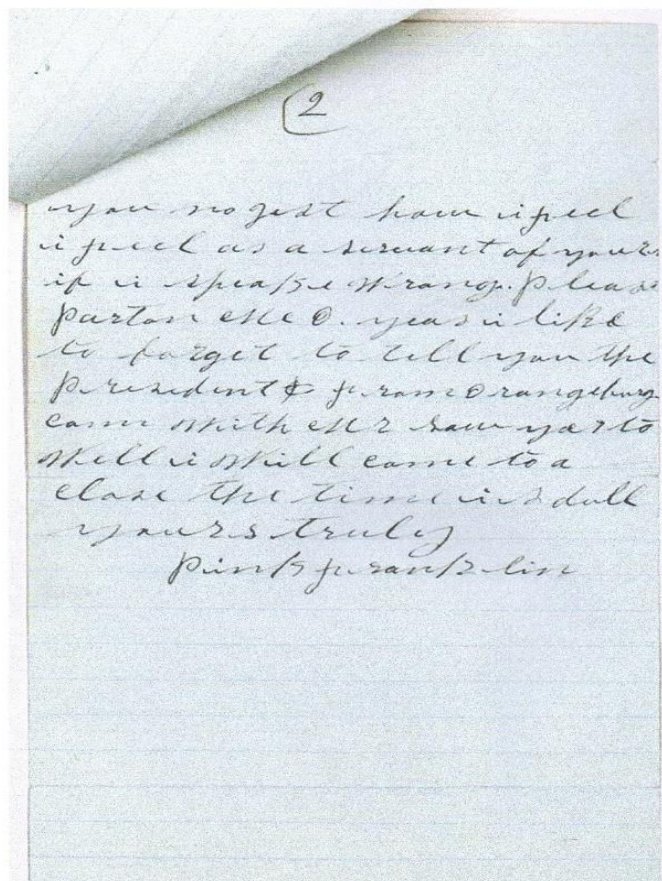 (2
you no gest how i feel
i feel as a servant of yours
if i speake wrang. Please
parton me O. yeas i like
to forget to tell you the
presedent from Orangeburg
cam with Mr to
well i will come to a
close the time is dull
yours truly
Pink franklin